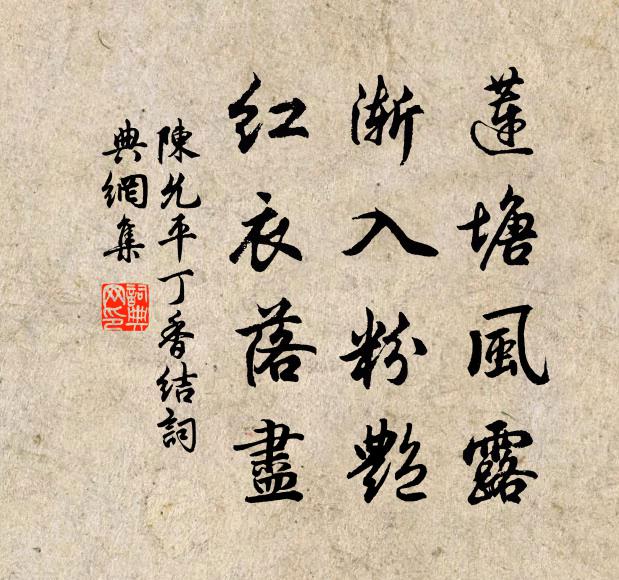 蓮塘風露
漸入粉艷
紅衣落盡
陳允平丁香结詞
典網集
詞典网印